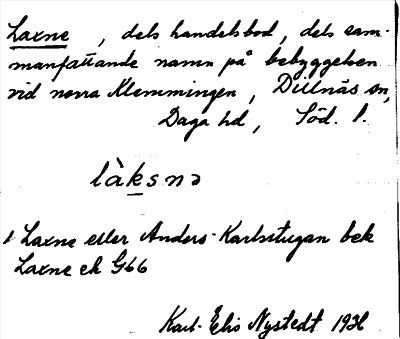 Laxne , dels handelsbod, dels sam-
manfattande namn på bebyggelsen
vid norra Klemmingen, Dillnäs sn,
Daga hd, Söd. l.
làksnə
1 Laxne eller Anders-Karlsstugan bek
Laxne ek G66
Karl-Elis Nystedt 1936